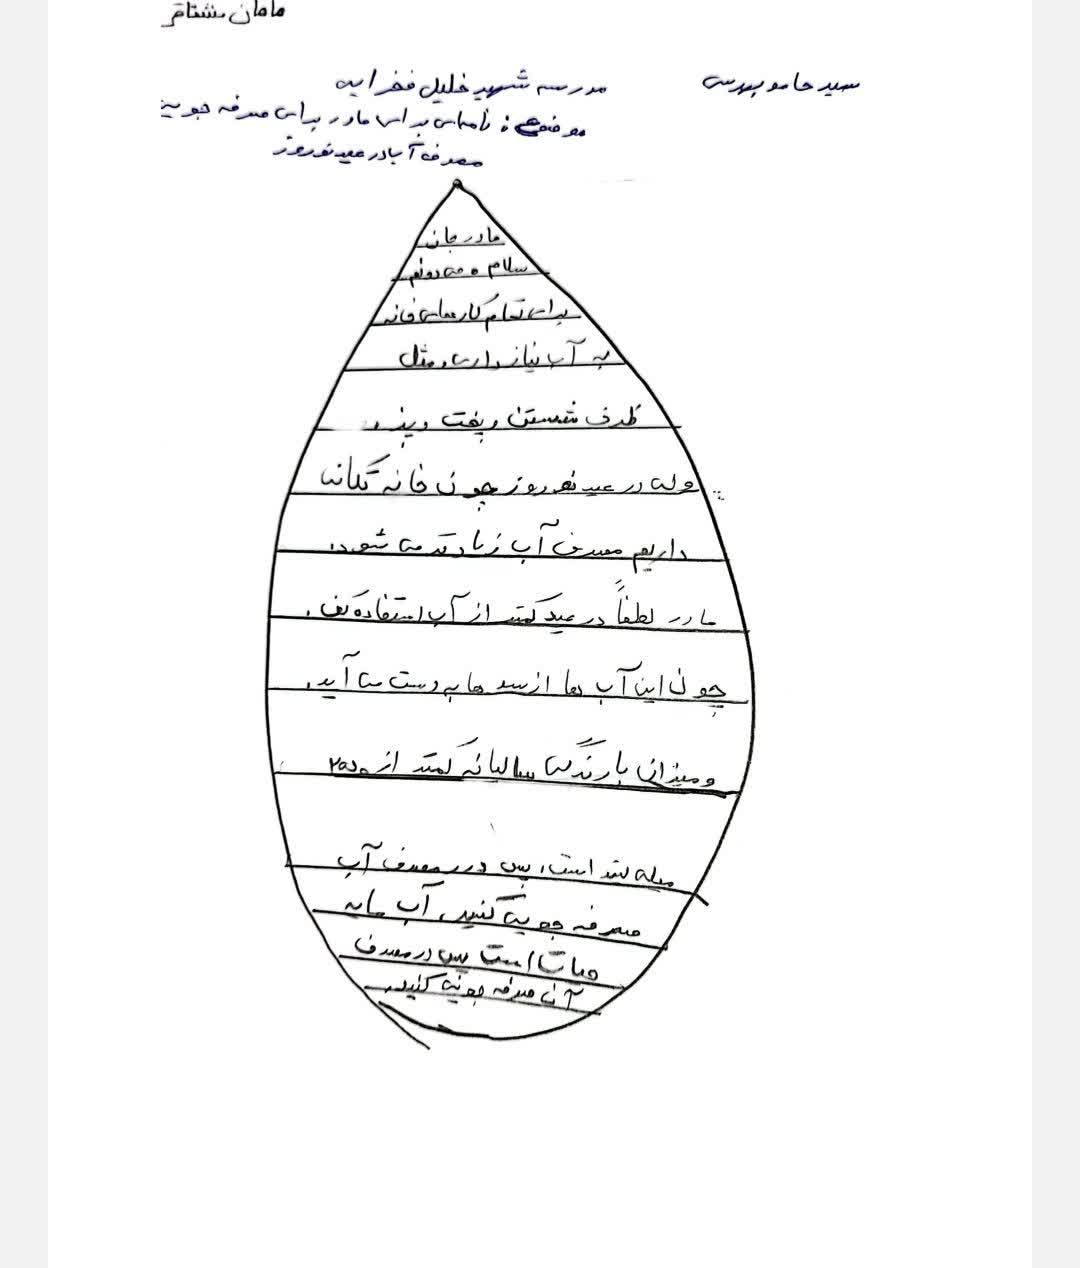 مامان مشتاق
سید حامد
مدرسه شهید خلیل فخرایی
موضوع: نامه‌ای برای مادر برای صرفه جویی
مصرف آب در عید نوروز
مادر جان
سلام، می دونم
برای تمام کارهای خانه
به آب نیاز داری، مثل
ظرف شستن و پخت و پز.
ولی در عید نوروز چون خانه تکانی
داریم مصرف آب زیادتر می شود.
مادر لطفاً در عید کمتر از آب استفاده کن.
چون این آب ها از سد ها به دست می آید.
و میزان بارندگی سالیانه کمتر از ۲۵۰
میلی متر است، پس در مصرف آب
صرفه جویی کنید. آب مایه
حیات است پس در مصرف
آن صرفه جویی کنید.